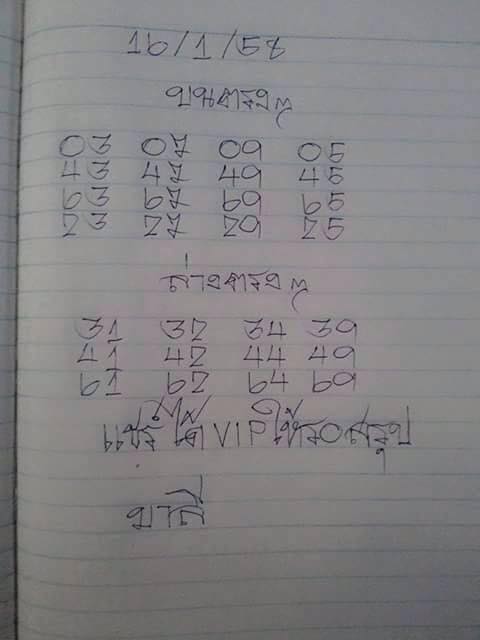 16/1/58
บน
03 07 09 05
43 47 49 45
63 67 69 65
23 27 29 25
ล่าง
31 32 34 39
41 42 44 49
61 62 64 69
แชร์ ได้ VIP ให้รอสรุป
มาลี